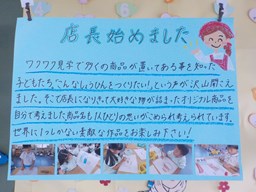 店長始めました
ワクワク見学で多くの商品が置いてある事を知った
子どもたち。"こんなしょうひんをつくりたい!"という声が沢山聞こえ
ました。そこで店長になりきって大好きな物が詰まったオリジナル商品を
自分で考えました。商品名も1人ひとりの思いがこめられ考えられています。
世界に1つしかない素敵な作品をお楽しみ下さい!